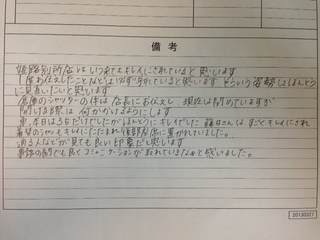 備考
姫路別所店はいつ来てもキレイにされていると思います
1度お伝えしたことなどは必ず守れていると思います そういう姿勢はほんとう
に見習いたいと思います
倉庫のシャッターの件は店長にお伝えし 現在は閉めていますが
閉める際は 何かかけるようにします
車、本日は3台だけでしたがほんとうにキレイでした 藤田さんは すごくキレイにされ
着替のシャツもキレイにたたまれ後部座席に置かれていました。
通る人などが見ても良い印象だと思います
事務の間でも良くコミュニケーションが取れているなぁと感いました。
20130327